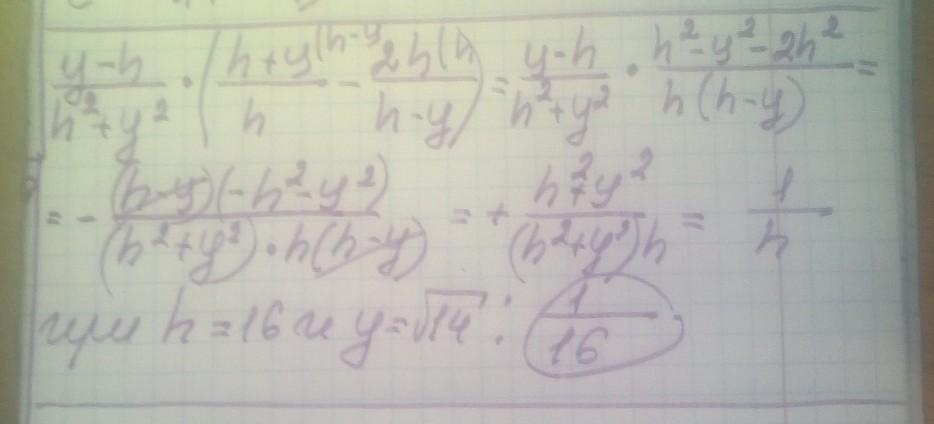 \frac{y-h}{h^2+y^2} \cdot \left( \frac{h+y^{(h-y}}{h} - \frac{2h^{(h}}{h-y} \right) = \frac{y-h}{h^2+y^2} \cdot \frac{h^2-y^2-2h^2}{h(h-y)} =
= - \frac{(h-y)(-h^2-y^2)}{(h^2+y^2) \cdot h(h-y)} = + \frac{h^2+y^2}{(h^2+y^2)h} = \frac{1}{h}
при h = 16 и y = \sqrt{14} : \frac{1}{16}